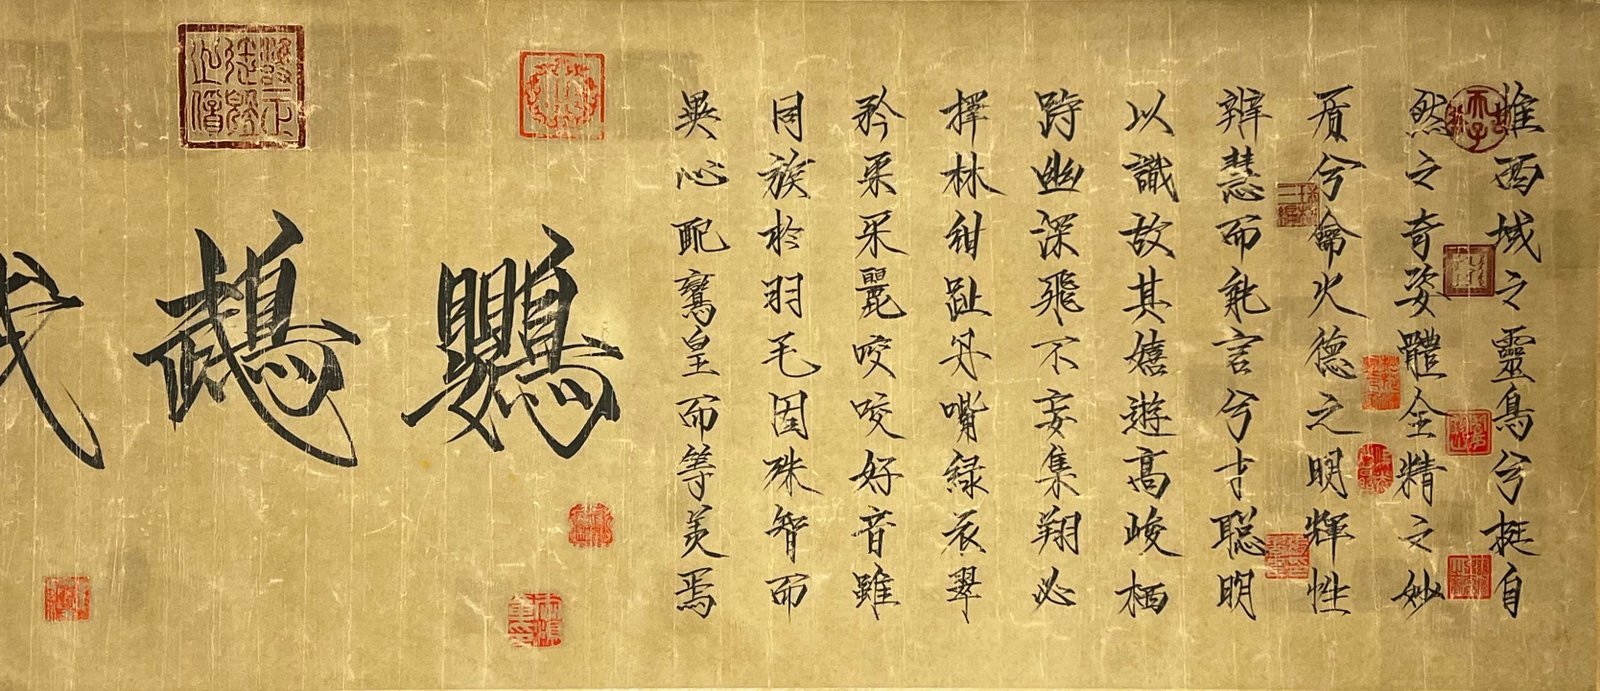 惟西域之靈鳥兮挺自
然之奇姿體全精之妙
兮龠火德之明輝性
辨慧而能言兮才聰明
以識故其嬉遊高峻栖
跱幽深飛不妄集翔必
擇林紺趾丹嘴綠衣翠
矜采采麗咬咬好音雖
同族於羽毛固殊智而
異心配鸞皇而等美焉
鸚鵡